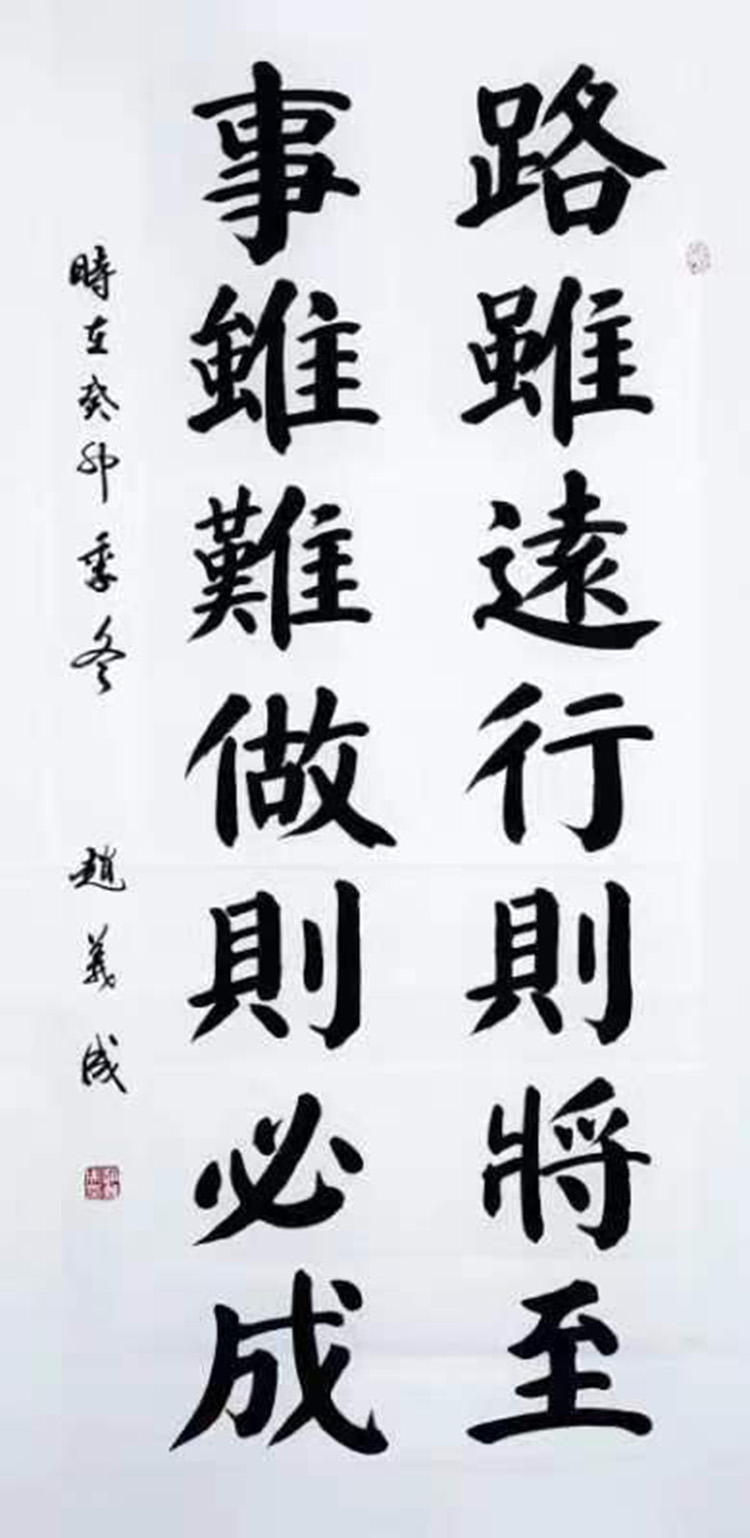 路雖遠行則將至
事雖難做則必成
時在癸卯季冬 趙義成